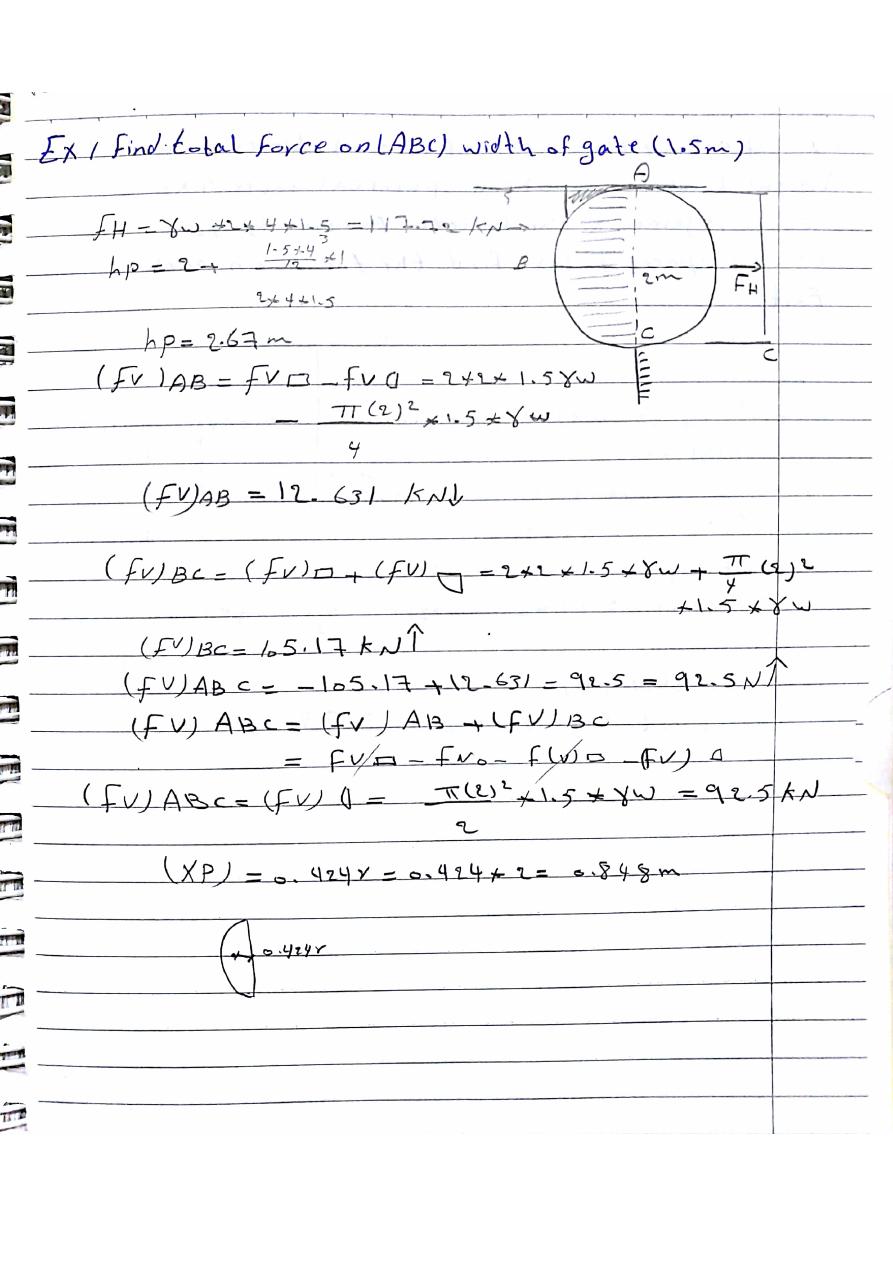 Ex / Find total force on (ABC) width of gate (1.5m)
A
FH = γw * 2 * 4 * 1.5 = 117.72 kN →
hp = 2 + 1.5 * 4³ / 12 * 1
2 * 4 * 1.5
B
2m
FH
hp = 2.67 m
C
C
(FV)AB = FV▭ - FV◖ = 2*2* 1.5 γw
- π(2)² / 4 * 1.5 * γw
(FV)AB = 12.631 kN↓
(FV)BC = (FV)▭ + (FV) = 2*2*1.5*γw + π/4 (2)²
*1.5 * γw
(FV)BC = 105.17 kN↑
(FV)ABC = -105.17 + 12.631 = 92.5 = 92.5N↑
(FV)ABC = (FV)AB + (FV)BC
= FV▭ - FV - F(V)▭ - (FV)
(FV)ABC = (FV) = π(2)² / 2 * 1.5 * γw = 92.5 kN
(XP) = 0.424r = 0.424 * 2 = 0.848m
0.424r